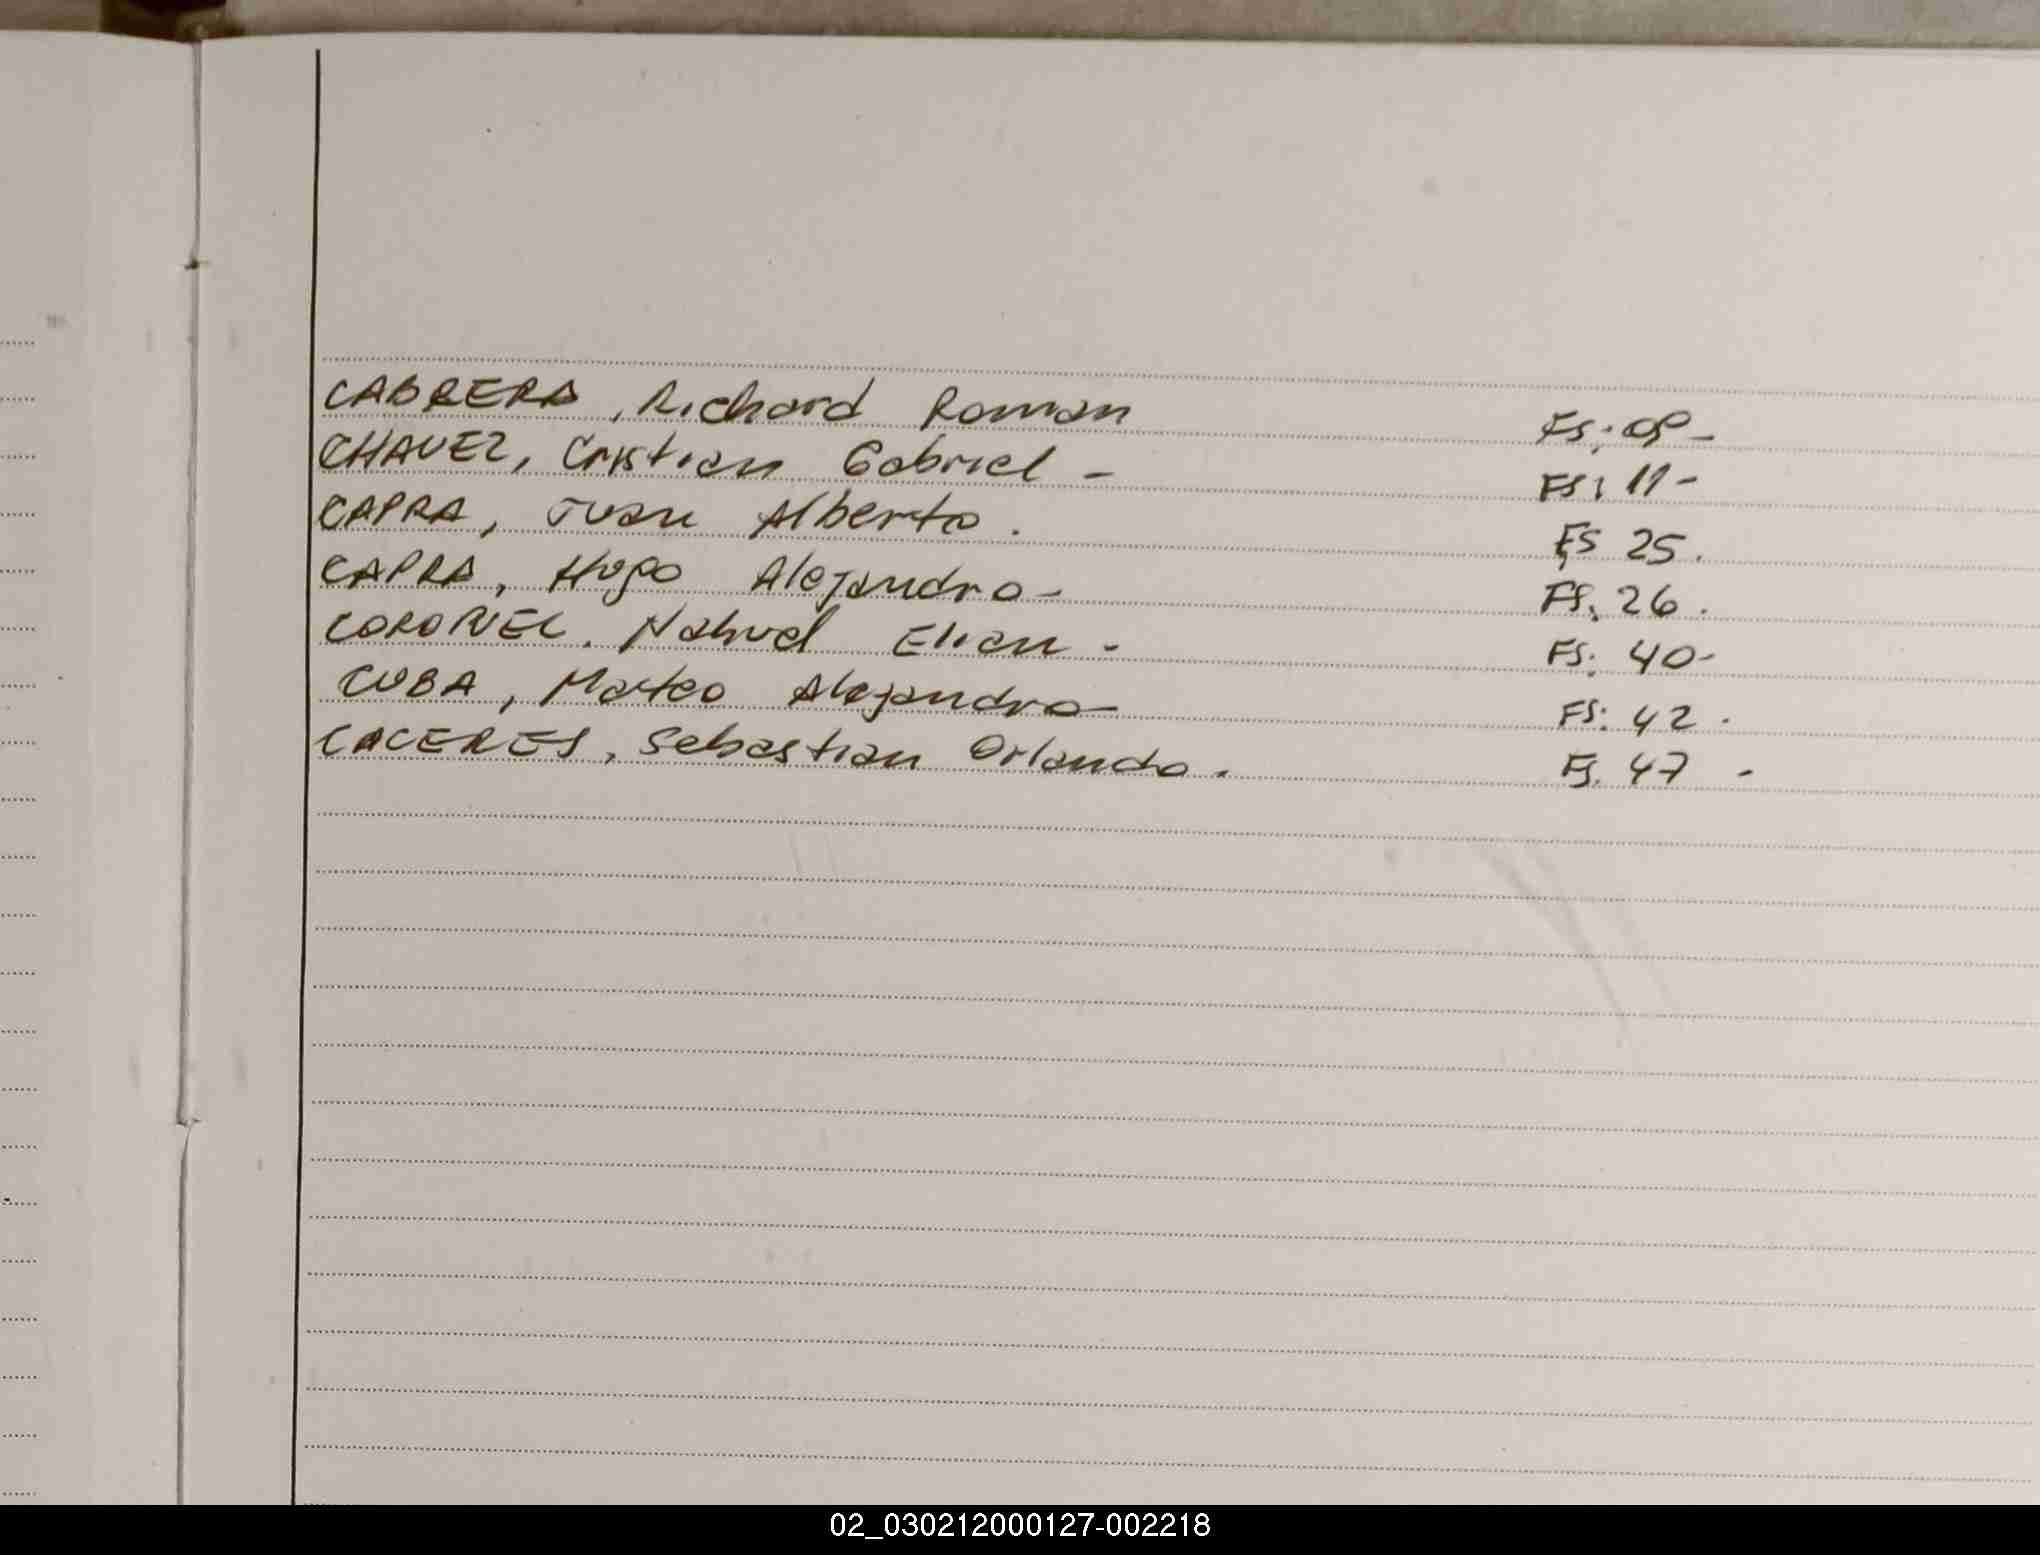 CABRERA, Richard Roman Fs: 09-
CHAVEZ, Cristian Gabriel - Fs: 11-
CAPRA, Juan Alberto. Fs 25.
CAPRA, Hugo Alejandro- Fs. 26.
CORONEL. Nahuel Elian - Fs: 40-
CUBA, Mateo Alejandro- Fs: 42.
CACERES, Sebastian Orlando. Fs. 47 -
02_030212000127-002218